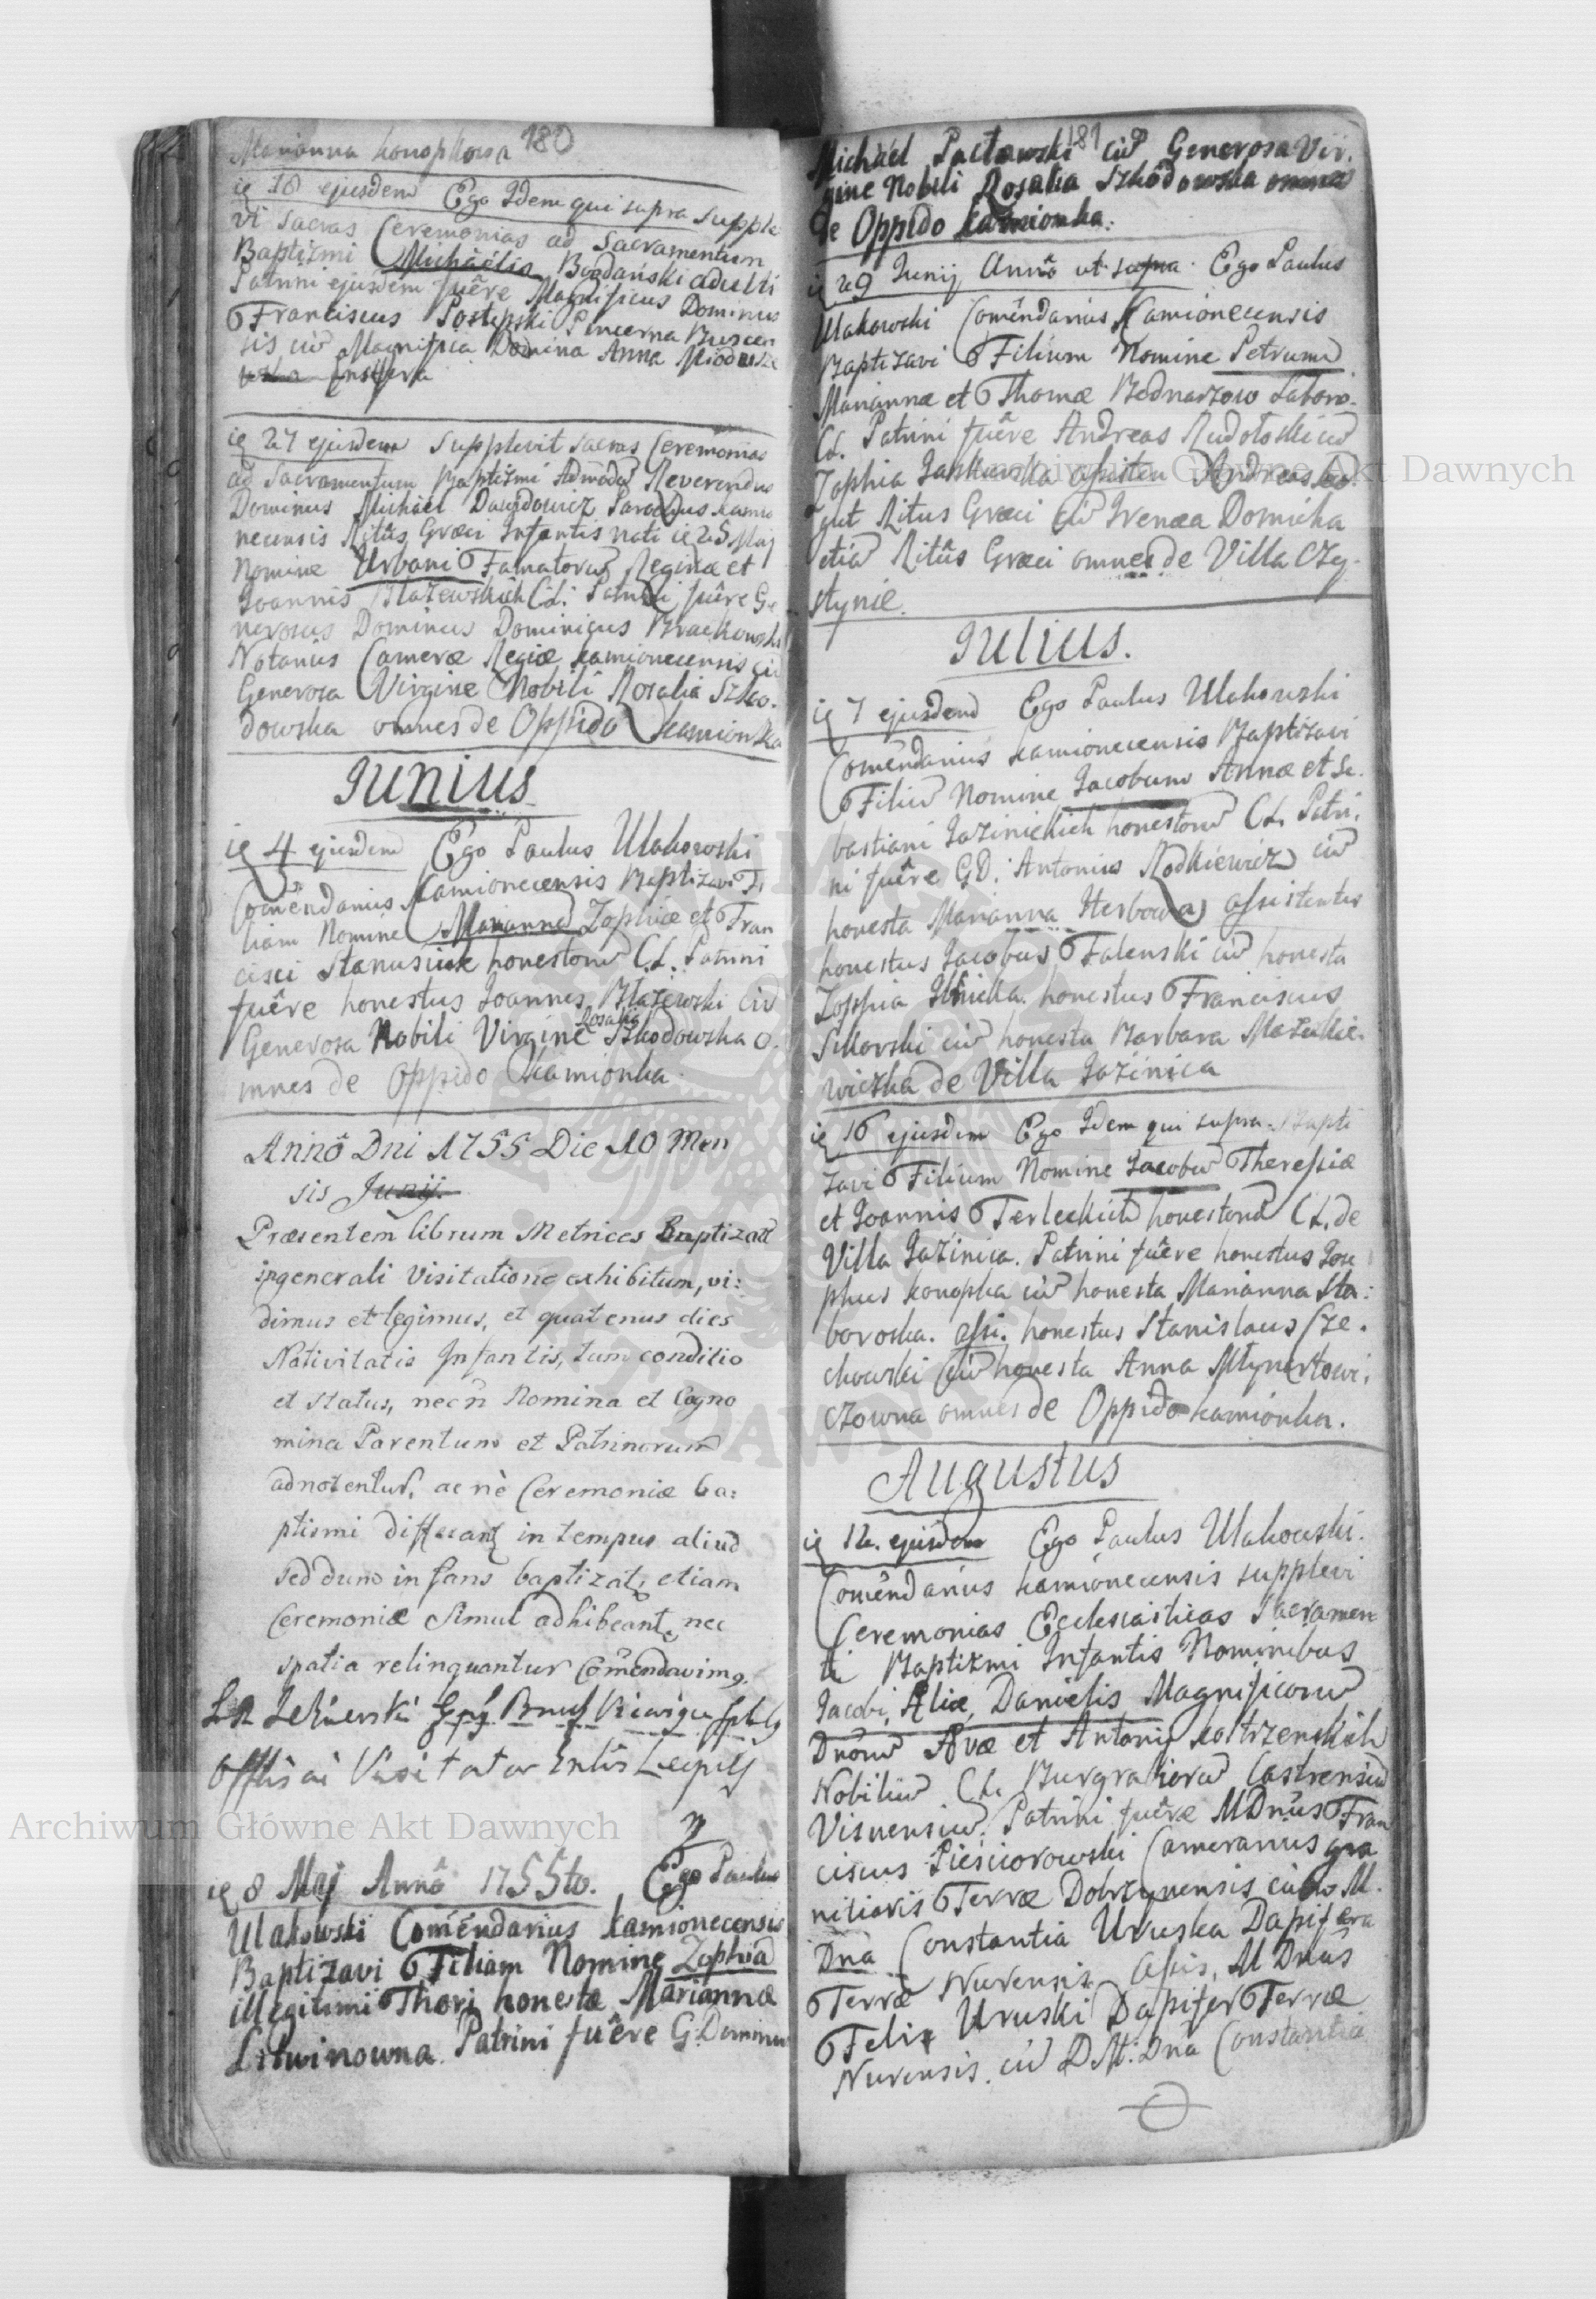 180
Marianna konopkowa
18 ejusdem Ego Idem qui supra supple
vi sacras Ceremonias ad Sacramentum
Baptizmi Michaelis Bogdański adulti
Patrini ejusdem fuêre Magnificus Dominus
Franciscus Postepski Pincerna Buscen
sis cum Magnifica Domina Anna Miodusze
27 ejusdem supplevit sacras Ceremonias
ad Sacramentum Baptizmi Admodum Reverendus
Dominus Michael Dawidowicz Parochus kamio
necensis Ritûs Græci Infantis nati 25 Maij
Nomine Urbani Famatorum Reginæ et
Joannis Błażewskich C.L. Patrini fuêre Ge
nerosus Dominus Dominicus Brackowski
Notarius Cameræ Regiæ kamionecensis cum
Generosa Virgine Nobili Rosalia Szko-
dowska omnes de Oppido kamionka
Junius
4 ejusdem Ego Paulus Ulakowski
Comendarius Kamionecensis Baptizavi Fi
liam Nomine Mariannam Zophiæ et Fran
cisci Stanusiuk honestorum C.L. Patrini
fuêre honestus Joannes Błażewski cum
Generosa Nobili Virgine Rosalia Szkodowska o-
mnes de Oppido kamionka
Annô Dni 1755 Die 10 Men
sis Junij.
Præsentem librum Metrices Baptizat
in generali Visitatione exhibitum, vi:
dimus et legimus, et quatenus dies
Nativitatis Infantis, tum conditio
et status, necn Nomina et Cogno
mina Parentum et Patrinorum
adnotentur, ac nè Ceremoniæ ba:
ptismi differant in tempus aliud
sed dum infans baptizatr, etiam
Ceremoniæ simul adhibeant, nec
spatia relinquantur Comendavimq.
Visitator
8 Maij Annô 1755to. Ego Paulus
Ulakowski Comendarius kamionecensis
Baptizavi Filiam Nomine Zophia
illegitimi Thori honestæ Mariannæ
Litwinowna. Patrini fuêre G. Dominus
181
Michael Pactawski cum Generosa Vir.
gine Nobili Rosalia Szkodowska omnes
de Oppido kamionka.
29 Junij Annô ut supra. Ego Paulus
Ulakowski Comendarius Kamionecensis
Baptizavi Filium Nomine Petrum
Mariannæ et Thomæ Bednarzow Laborio-
C.L. Patrini fuêre Andreas Rudołoski cum
Zophia Jaskowska assisten Andreas
Ritus Græci cum Irenæa Domicka
etiam Ritûs Græci omnes de Villa Czy-
stynie.
Julius.
7 ejusdem Ego Paulus Ulakowski
Comendarius kamionecensis Baptizavi
Filium Nomine Jacobum Annæ et Se-
bastiani Jazinickich honestorum C.L. Patri-
ni fuêre G.D. Antonius Rodkiewicz cum
honesta Marianna Herbowa assistentes
honestus Jacobus Falenski cum honesta
Zophia Ilnicka. honestus Franciscus
Sikorski cum honesta Barbara Mazukie-
wiczka de Villa Jazinica
16 ejusdem Ego Idem qui supra Bapti
zavi Filium Nomine Jacobum Theresiæ
et Joannis Terleckich honestorum C.L. de
Villa Jazinica. Patrini fuêre honestus Jose
phus konopka cum honesta Marianna Sta:
boroska. Assi. honestus Stanislaus Cze-
chowski cum honesta Anna Młynartowi-
czowna omnes de Oppido kamionka.
Augustus
12. ejusdem Ego Paulus Ulakowski.
Comendarius kamionecensis supplevi
Ceremonias Ecclesiasticas Sacramen
ti Baptizmi Infantis Nominibus
Jacobi, Aliæ, Danielis Magnificorum
Dnorum Avæ et Antonij kostrzenskich
Nobilium C.L. Burgrabiorum Castrensium
Visnensium. Patrini fuêre M Dnûs Fran
ciscus Piesciorowski Camerarius gra
nitiaris Terræ Dobrzynensis cum M.
Dna Constantia Uruska Dapifera
Terræ Nurensis. Assis. M Dnûs
Felix Uruski Dapifer Terræ
Nurensis. cum D.M. Dna Constantia
Archiwum Główne Akt Dawnych
Archiwum Główne Akt Dawnych